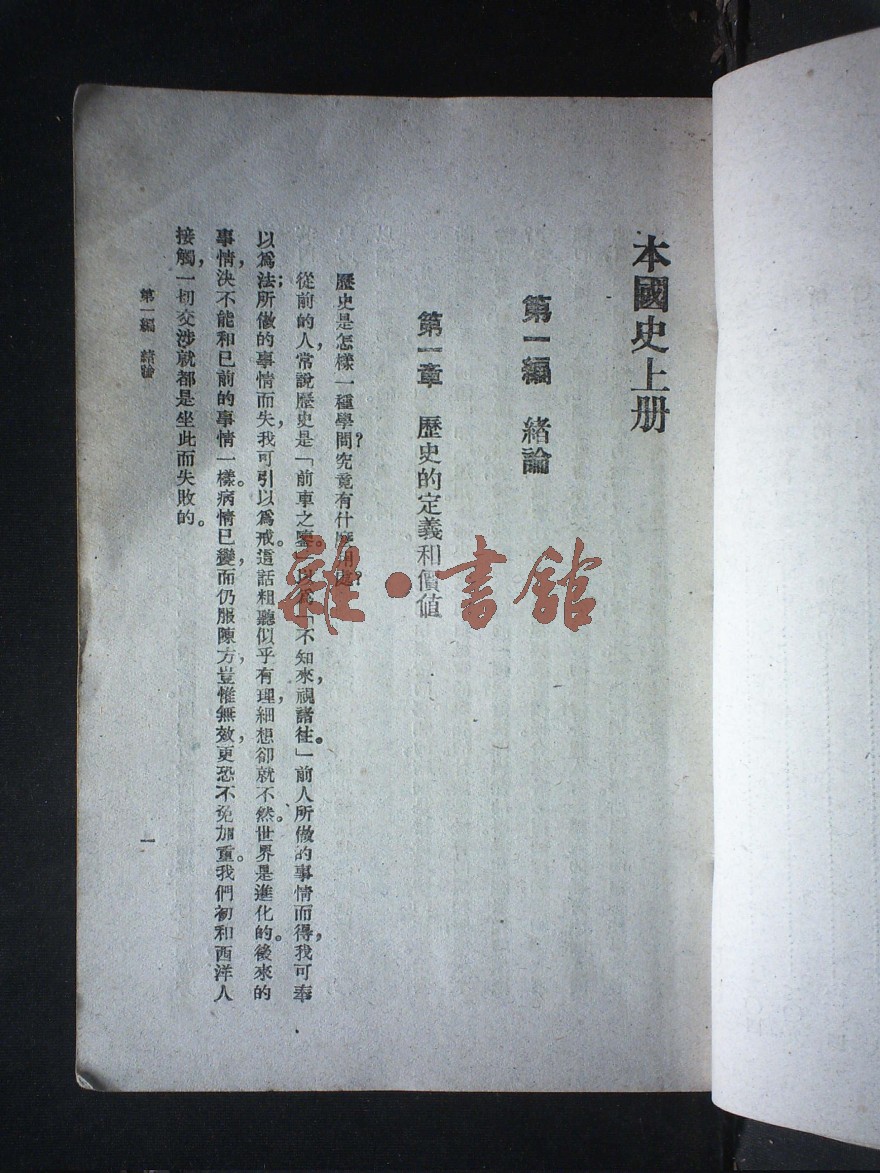 本國史上册
第一編 緒論
第一章 歷史的定義和價値
歷史是怎樣一種學問？究竟有什麼用處？
從前的人，常說歷史是「前車之鑒」，以爲「不知來，視諸往。」前人所做的事情而得，我可奉
以爲法；所做的事情而失，我可引以爲戒。這話粗聽似乎有理，細想卻就不然。世界是進化的，後來的
事情，決不能和已前的事情一樣。病情已變，而仍服陳方，豈惟無效，更恐不免加重。我們初和西洋人
接觸，一切交涉就都是坐此而失敗的。
第一編 緒論
一
雜·書館